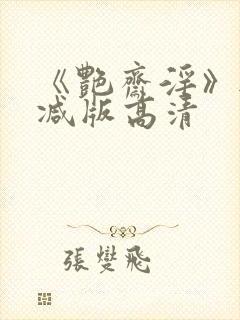 《艷齋淫》
减版高清
張燮飛